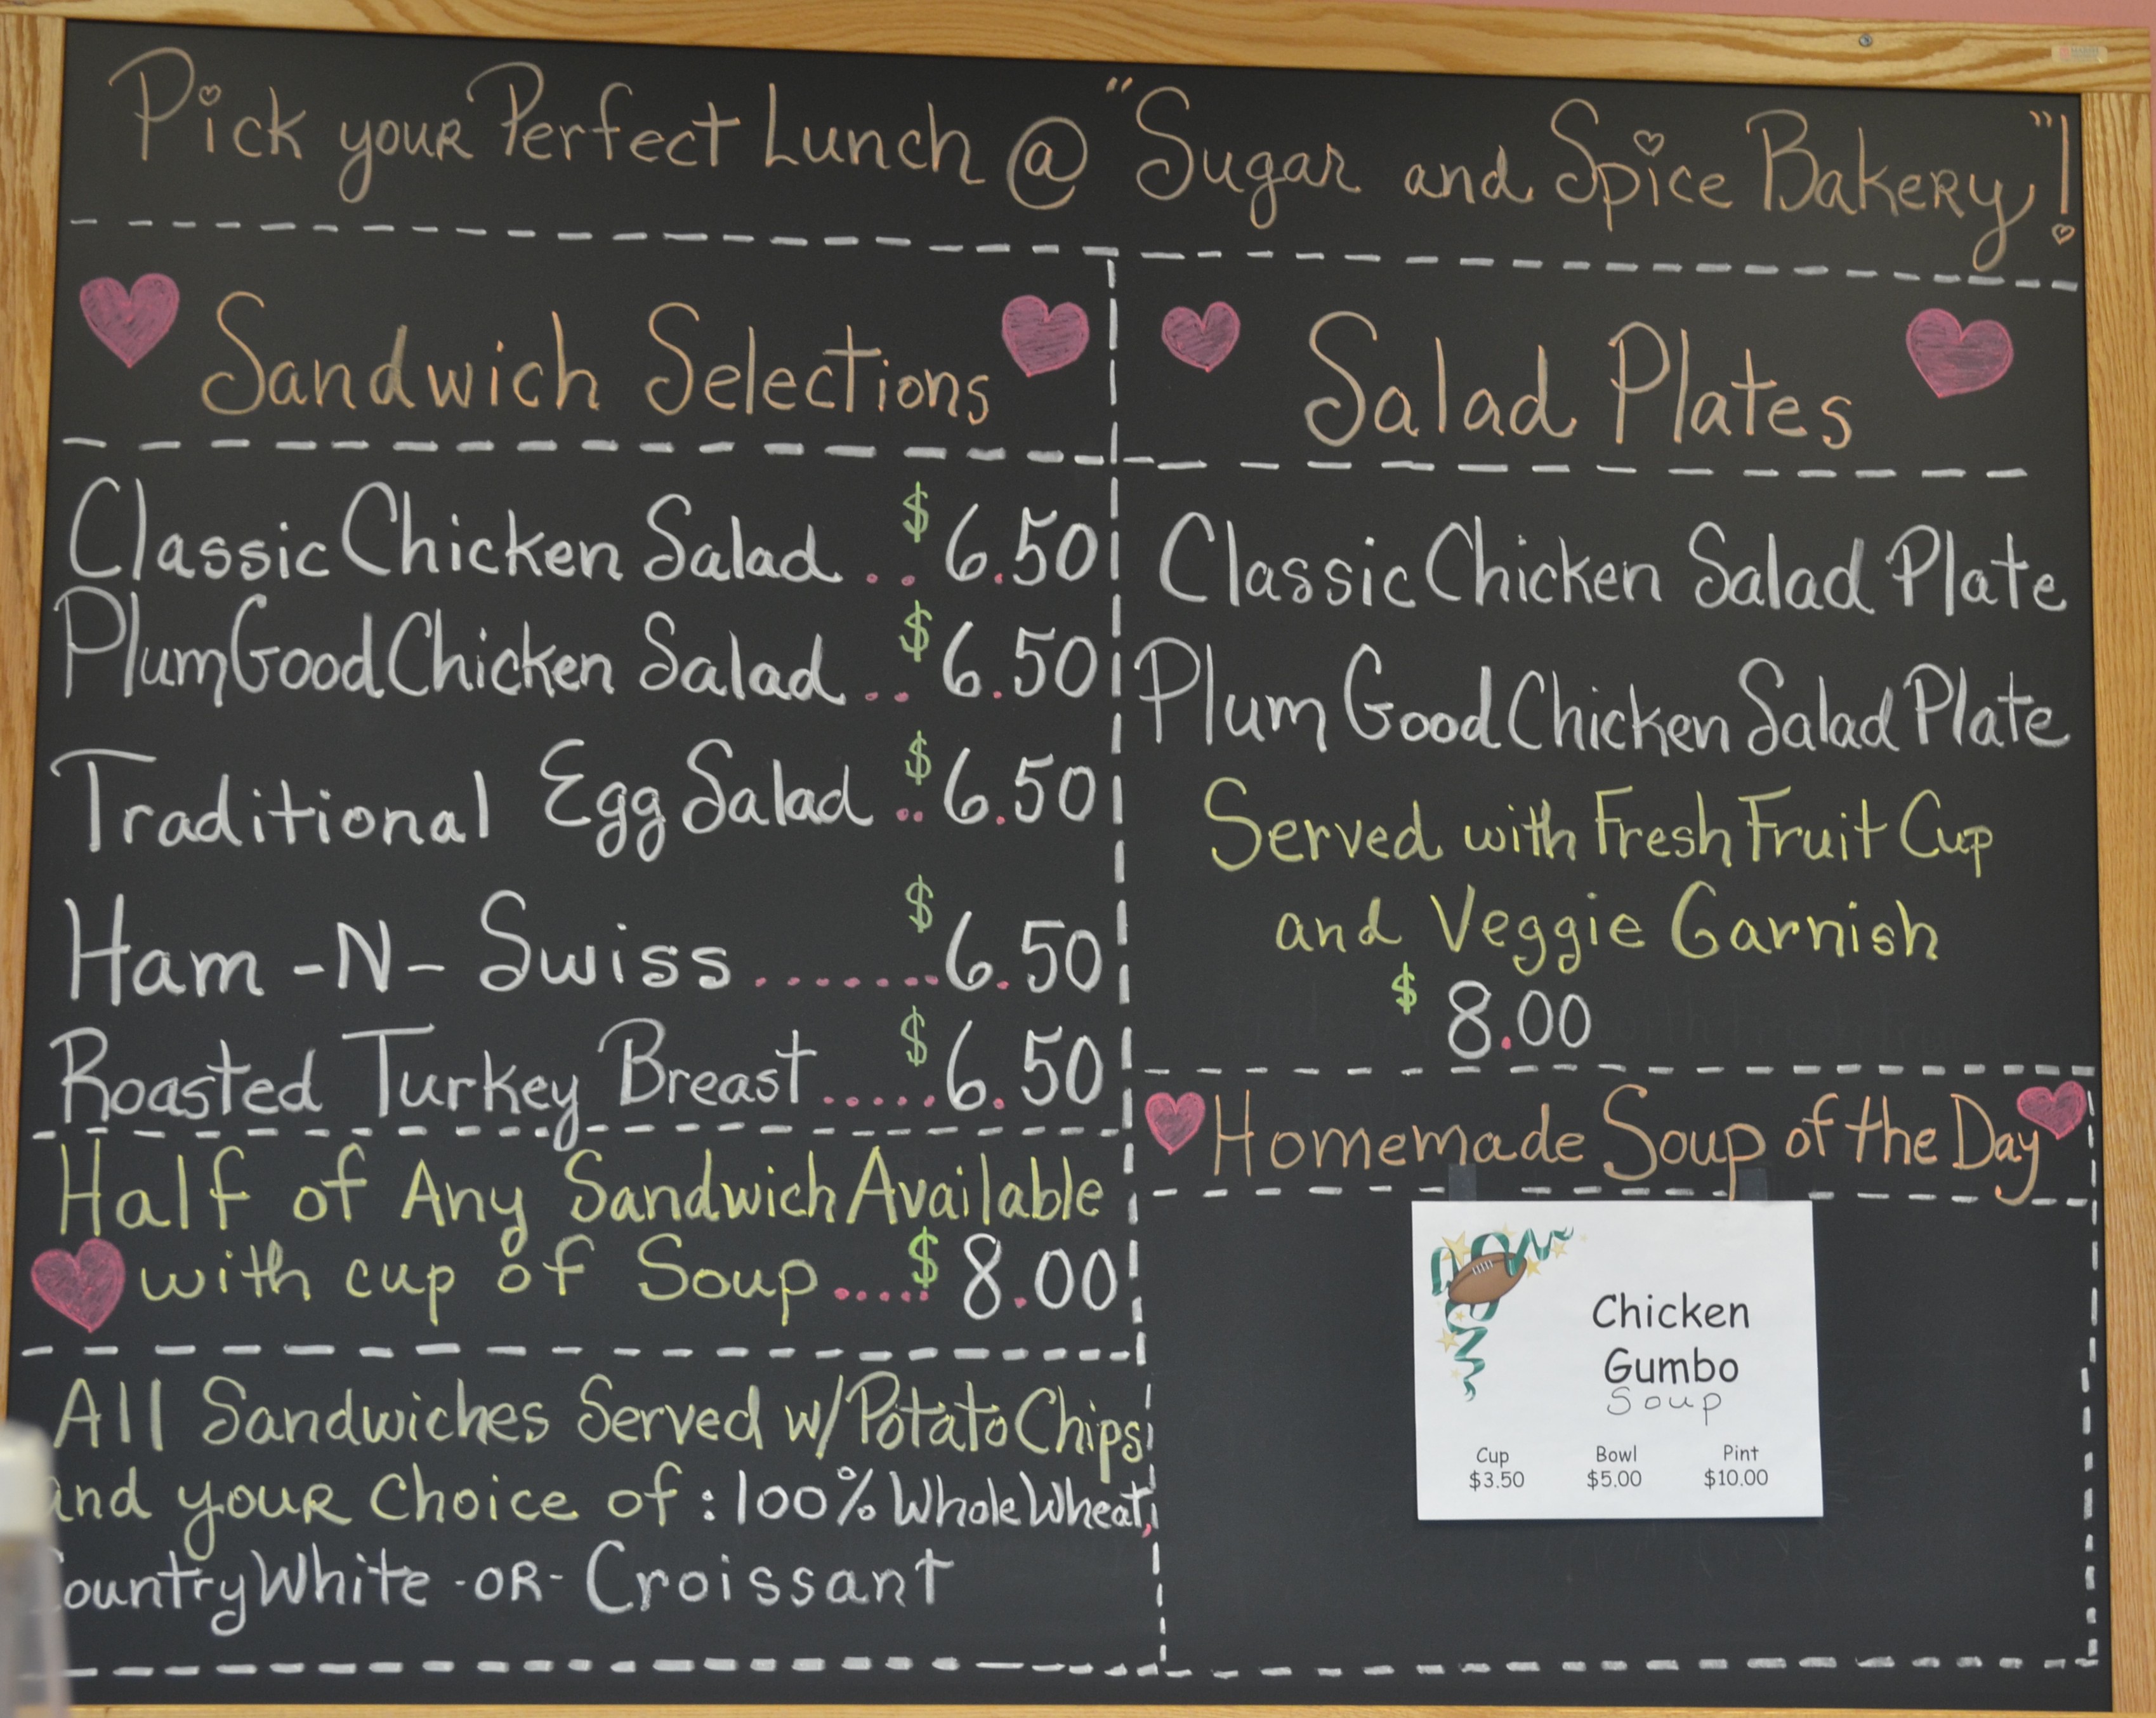 Pick your Perfect Lunch @ "Sugar and Spice Bakery"!
Sandwich Selections
Classic Chicken Salad .. $6.50
Plum Good Chicken Salad .. $6.50
Traditional Egg Salad .. $6.50
Ham -N- Swiss ........ $6.50
Roasted Turkey Breast ..... $6.50
Half of Any Sandwich Available
with cup of Soup ..... $8.00
All Sandwiches Served w/Potato Chips
and your Choice of : 100% Whole Wheat,
Country White -OR- Croissant
Salad Plates
Classic Chicken Salad Plate
Plum Good Chicken Salad Plate
Served with Fresh Fruit Cup
and Veggie Garnish
$8.00
Homemade Soup of the Day
Chicken
Gumbo
Soup
Cup Bowl Pint
$3.50 $5.00 $10.00